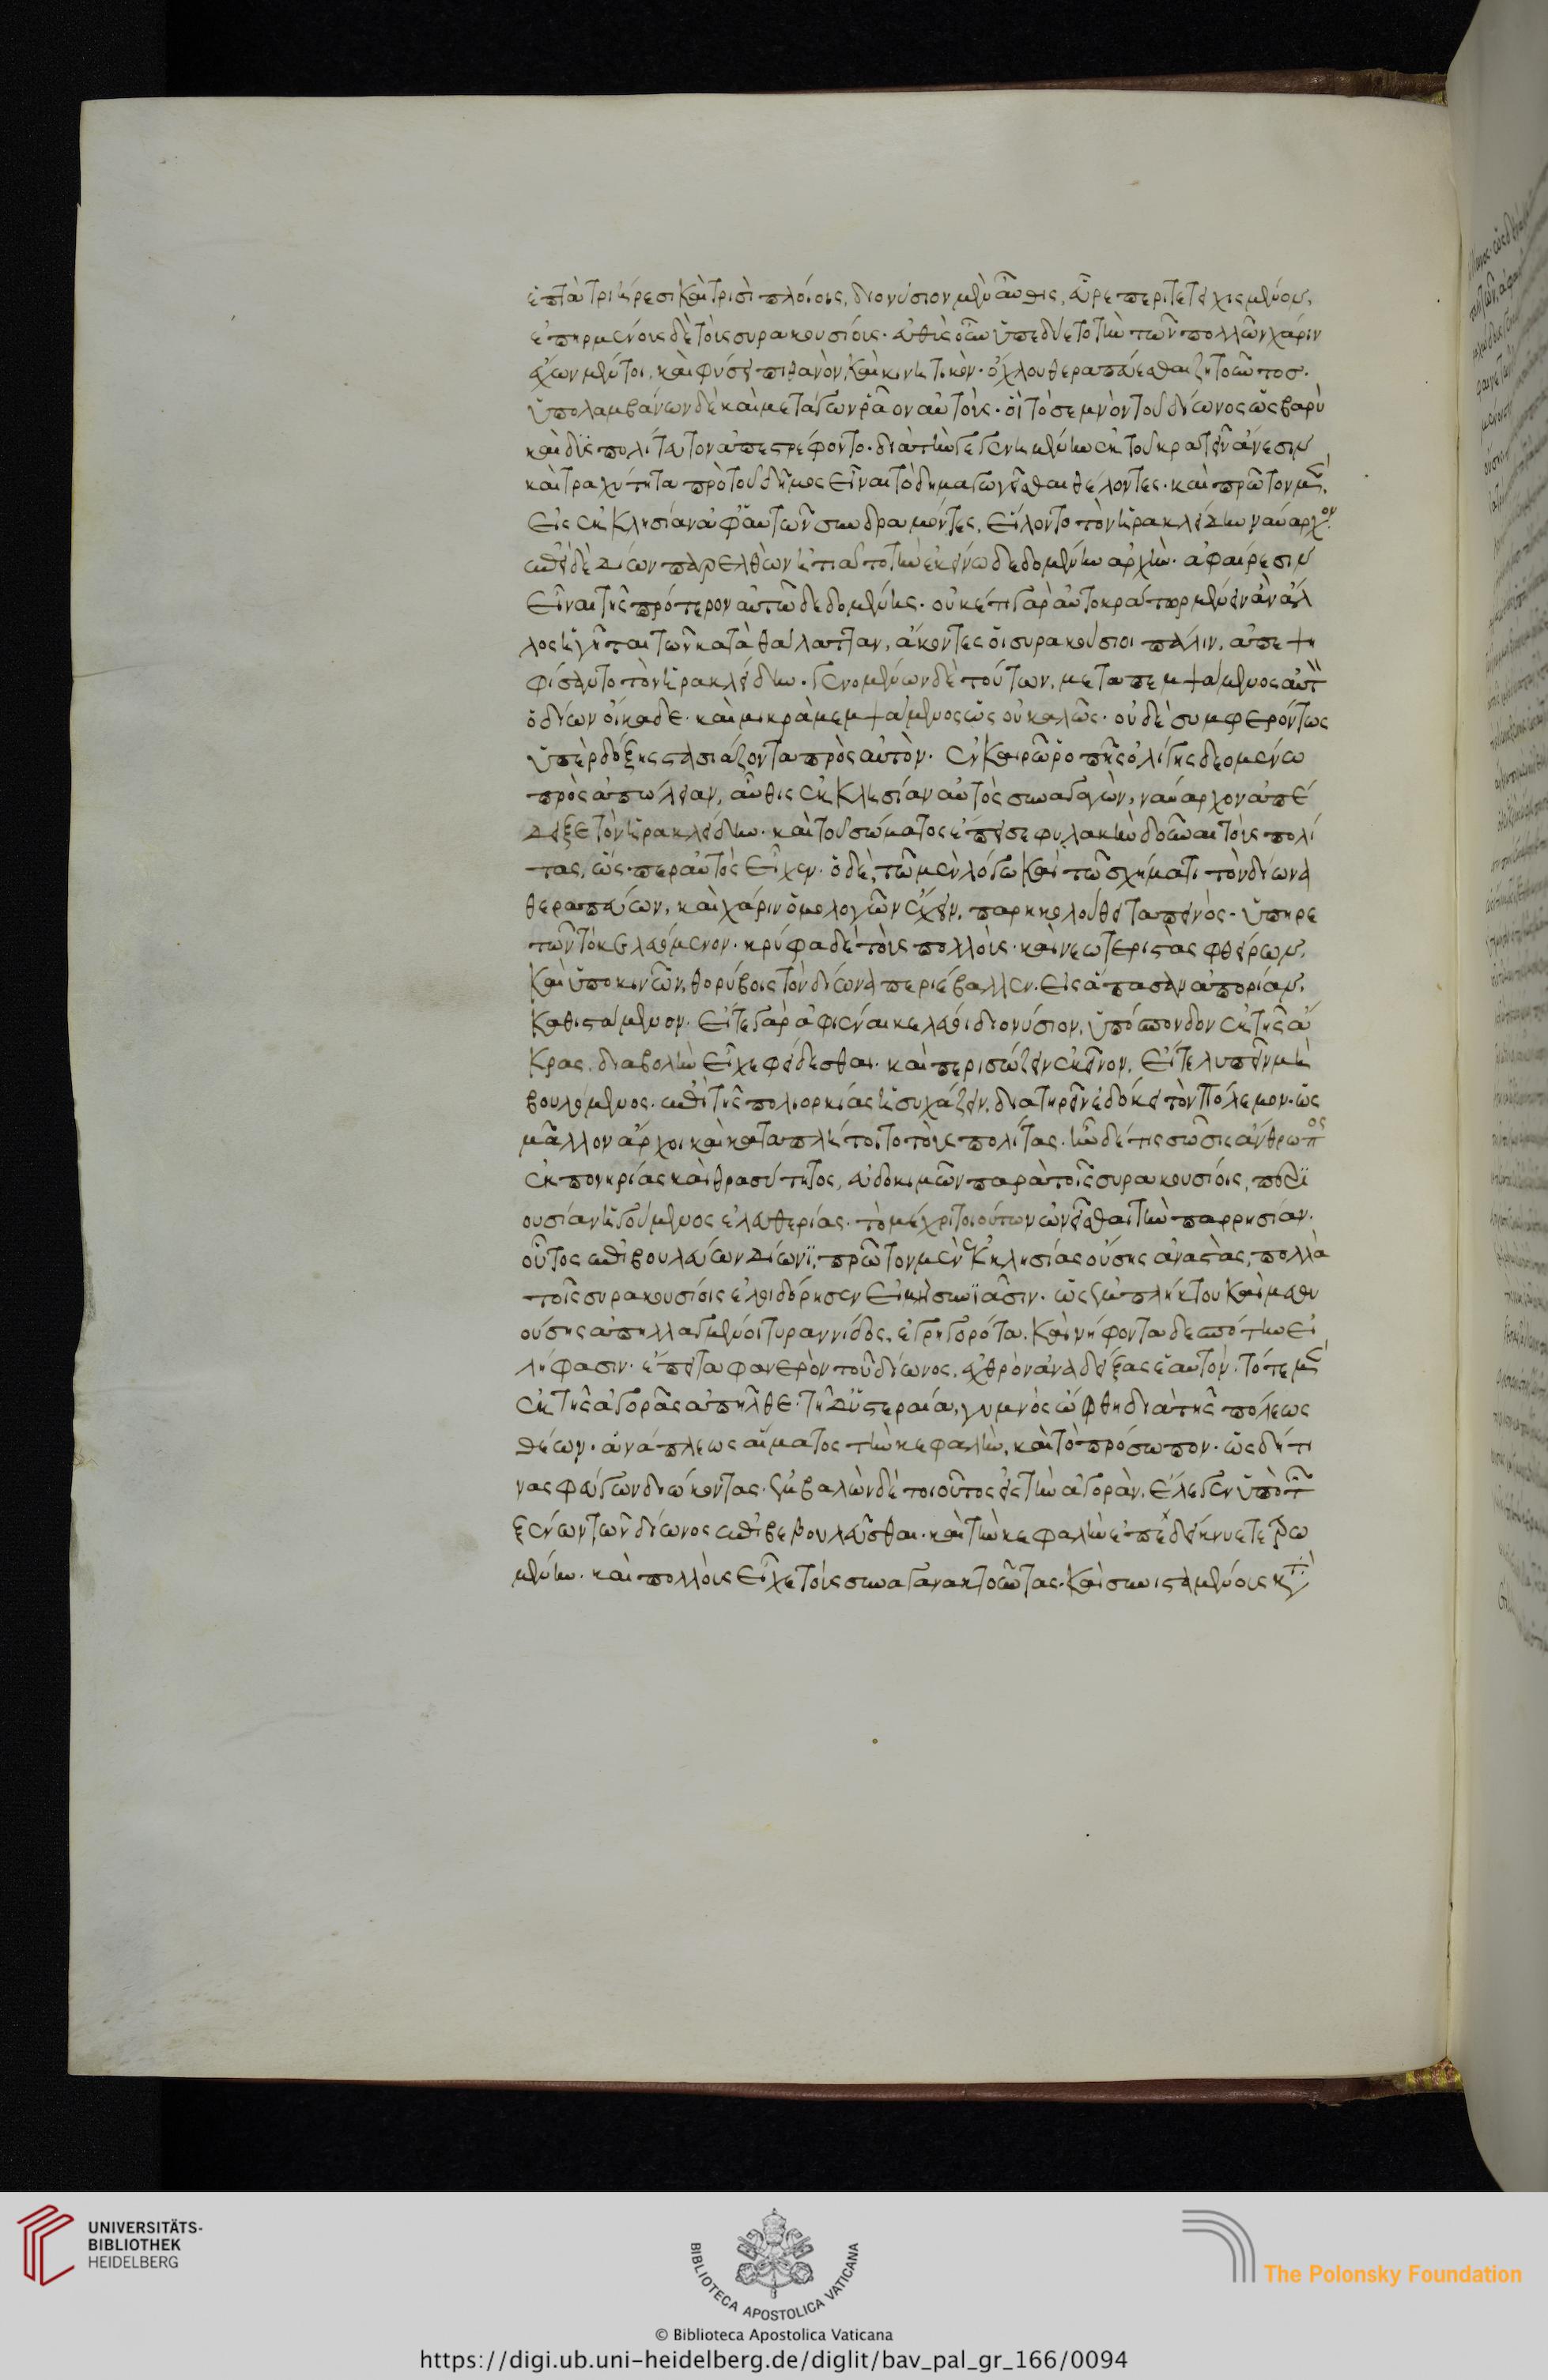 ἑπτὰ τριήρεσι καὶ τρισὶ πλοίοις, διονύσιον μὲν αὖθις, εὗρε περιτετειχισμένον,
ἐπηρμένοις δὲ τοῖς συρακουσίοις. εὐθὺς οὖν ὑπεδύετο τὴν τῶν πολλῶν χάριν
ἔχων μέν τοι, καὶ φύσει πιθανὸν, καὶ κινητικὸν. ὄχλου θεραπεύεσθαι ζητοῦντοσ.
ὑπολαμβάνων δὲ καὶ μετάγων ῥᾶον αὐτοὺς. οἳ τὸ σεμνὸν τοῦ δίωνος ὡς βαρὺ
καὶ δυσπολίτευτον ἀπεστρέφοντο. διὰ τὴν γεγενημένην ἐκ τοῦ κρατεῖν ἄνεσιν
καὶ τραχύτητα πρὸ τοῦ δῆμος εἶναι τὸ δημαγωγεῖσθαι θέλοντες. καὶ πρῶτον μὲν,
εἰς ἐκκλησίαν ἀφ' ἑαυτῶν συνδραμόντες, εἵλοντο τὸν ἡρακλείδην ναύαρχον.
ἐπεὶ δὲ δίων παρελθὼν ἠτιᾶτο τὴν ἐκείνω δεδομένην ἀρχὴν. ἀφαίρεσιν
εἶναι τῆς πρότερον αὐτῶ δεδομένης. οὐκέτι γὰρ αὐτοκράτωρ μένειν ἂν ἄλ
λος ἡγῆται τῶν κατὰ θάλατταν, ἄκοντες οἱ συρακούσιοι πάλιν, ἀπεψη
φίσαντο τὸν ἡρακλείδην. γενομένων δὲ τούτων, μεταπεμψάμενος αὐτὸν
ὁ δίων οἴκαδε. καὶ μικρὰ μεμψάμενος ὡς οὐ καλῶς. οὐδὲ συμφερόντως
ὑπὲρ δόξης στασιάζοντα πρὸς αὐτὸν. ἐν καιρῶ ῥοπῆς ὀλίγης δεομένω
πρὸς ἀπώλειαν, αὖθις ἐκκλησίαν αὐτὸς συναγαγὼν, ναύαρχον ἀπέ
δειξε τὸν ἡρακλείδην. καὶ τοῦ σώματος ἔπεισε φυλακὴν δοῦναι τοὺς πολί
τας, ὥσπερ αὐτὸς εἶχεν. ὁ δὲ, τῶ μὲν λόγω καὶ τῶ σχήματι τὸν δίωνα
θεραπεύων, καὶ χάριν ὁμολογῶν ἔχειν, παρηκολούθει ταπεινὸς. ὑπηρε
τῶν τὸ κελευόμενον. κρύφα δὲ τοὺς πολλοὺς. καὶ νεωτεριστὰς φθείρων,
καὶ ὑποκινῶν, θορύβοις τὸν δίωνα περιέβαλλεν. εἰς ἅπασαν ἀπορίαν,
καθιστάμενον. εἴτε γὰρ ἀφιέναι κελεύοι διονύσιον, ὑπόσπονδον ἐκ τῆς ἄ
κρας, διαβολὴν εἶχε φείδεσθαι. καὶ περισώζειν ἐκεῖνον, εἴτε λυπεῖν μὴ
βουλόμενος. ἐπὶ τῆς πολιορκίας ἡσυχάζειν, διατηρεῖν ἐδόκει τὸν πόλεμον. ὡς
μᾶλλον ἄρχοι καὶ καταπλήττοιτο τοὺς πολίτας. ἦν δέ τις σῶσις ἄνθρωπος
ἐκ πονηρίας καὶ θρασύτητος, εὐδοκιμῶν παρὰ τοῖς συρακουσίοις, περϊ
ουσίαν ἡγούμενος ἐλευθερίας. τὸ μέχρι τοιούτων ἀνεῖσθαι τὴν παρρησίαν.
οὗτος ἐπιβουλεύων δίωνϊ, πρῶτον μὲν ἐκκλησίας οὔσης ἀναστὰς, πολλὰ
τοῖς συρακουσίοις ἐλοιδόρησεν εἰ μὴ συνϊᾶσιν. ὡς ἐξ ἐμπλήκτου καὶ μεθυ
ούσης ἀπηλλαγμένοι τυραννίδος, ἐγρηγορότα. καὶ νήφοντα δεσπότην εἰ
λήφασιν. ἔπειτα φανερὸν τοῦ δίωνος, ἐχθρὸν ἀναδείξας ἑαυτὸν. τότε μὲν
ἐκ τῆς ἀγορᾶς ἀπῆλθε. τῆ δ' ὑστεραία, γυμνὸς ὤφθη διὰ τῆς πόλεως
θέων. ἀνάπλεως αἵματος τὴν κεφαλὴν, καὶ τὸ πρόσωπον. ὡς δή τι
νας φεύγων διώκοντας. ἐμβαλὼν δὲ τοιοῦτος εἰς τὴν ἀγορὰν, ἔλεγεν ὑπὸ τῶν
ξένων τῶν δίωνος ἐπιβεβουλεῦσθαι. καὶ τὴν κεφαλὴν ἐπεδείκνυε τετρω
μένην. καὶ πολλοὺς εἶχε τοὺς συναγανακτοῦντας. καὶ συνισταμένους κατὰ
UNIVERSITÄTS-
BIBLIOTHEK
HEIDELBERG
BIBLIOTECA APOSTOLICA VATICANA
The Polonsky Foundation
© Biblioteca Apostolica Vaticana
https://digi.ub.uni-heidelberg.de/diglit/bav_pal_gr_166/0094